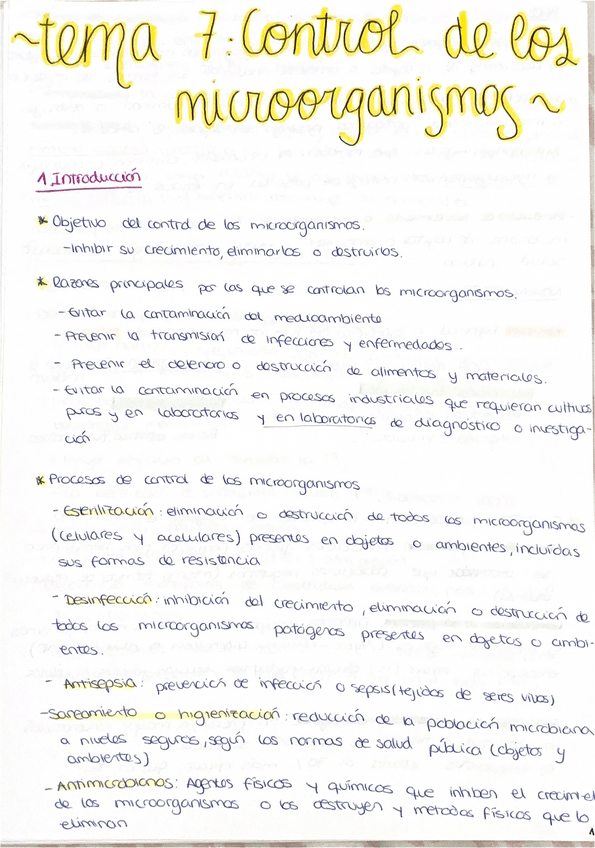 ~tema 7: Control de los
microorganismos~
1 Introducción
* Objetivo del control de los microorganismos.
-Inhibir su crecimiento, eliminarlos o destruirlos.
* Razones principales por las que se controlan los microorganismos.
- Evitar la contaminación del medioambiente
- Prevenir la transmisión de infecciones y enfermedades.
- Prevenir el deterioro o destrucción de alimentos y materiales.
- Evitar la contaminación en procesos industriales que requieran cultivos
puros y en laboratorios y en laboratorios de diagnóstico o investiga-
ción
* Procesos de control de los microorganismos
- Esterilización: eliminación o destrucción de todos los microorganismos
(celulares y acelulares) presentes en objetos o ambientes, incluídas
sus formas de resistencia
- Desinfección: inhibición del crecimiento, eliminación o destrucción de
todos los microorganismos patógenos presentes en objetos o ambi-
entes.
- Antisepsia: prevención de infección o sepsis (tejidos de seres vivos)
-Saneamiento o higienización: reducción de la población microbiana
a niveles seguros, según las normas de salud pública (objetos y
ambientes)
- Antimicrobianos: Agentes físicos y químicos que inhiben el crecimie
de los microorganismos o los destruyen y metodos físicos que lo
eliminan
1